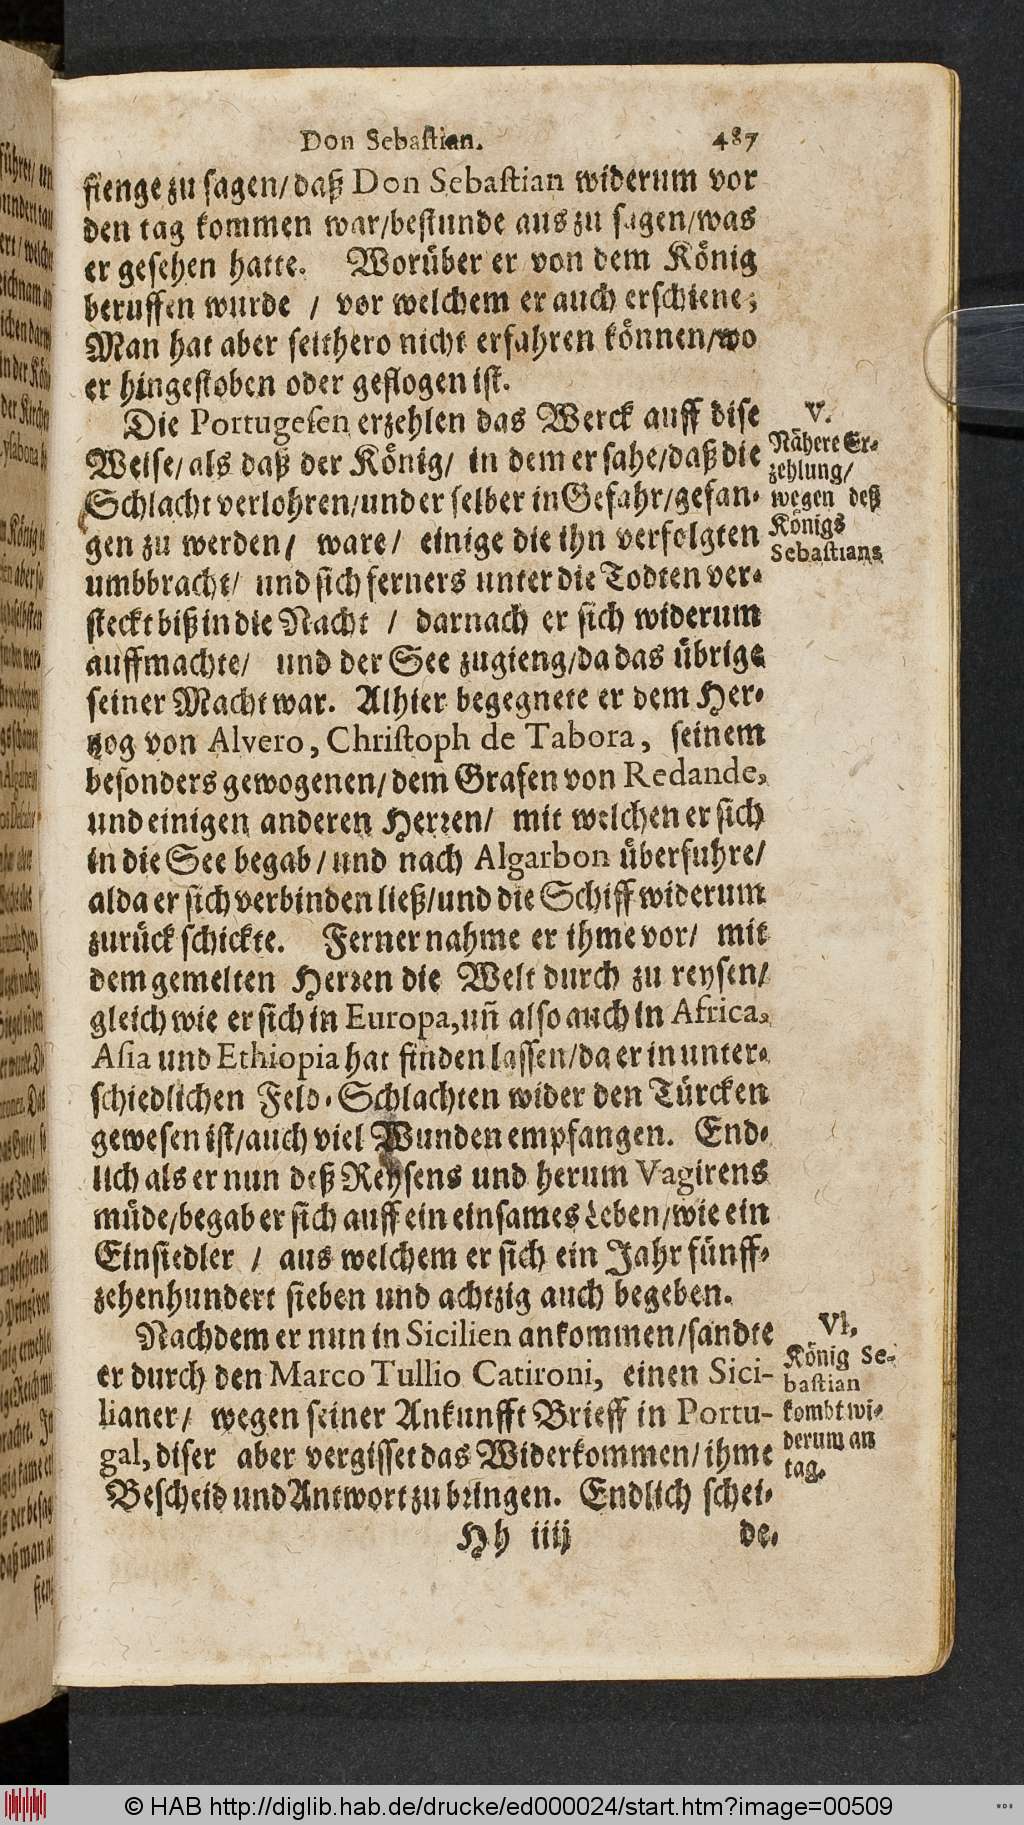 Don Sebastian. 487
fienge zu sagen/ daß Don Sebastian widerum vor
den tag kommen war/ bestunde aus zu sagen/ was
er gesehen hatte. Worüber er von dem König
beruffen wurde / vor welchem er auch erschiene;
Man hat aber seithero nicht erfahren können/ wo
er hingestoben oder geflogen ist.
Die Portugesen erzehlen das Werck auff dise
Weise/ als daß der König/ in dem er sahe/ daß die
Schlacht verlohren/ und er selber in Gefahr/ gefan-
gen zu werden/ ware/ einige die ihn verfolgten
umbbracht/ und sich ferners unter die Todten ver-
steckt biß in die Nacht / darnach er sich widerum
auffmachte/ und der See zugieng/ da das übrige
seiner Macht war. Alhier begegnete er dem Her-
tzog von Alvero, Christoph de Tabora, seinem
besonders gewogenen/ dem Grafen von Redande,
und einigen anderen Herren/ mit welchen er sich
in die See begab/ und nach Algarbon überfuhre/
alda er sich verbinden ließ/ und die Schiff widerum
zurück schickte. Ferner nahme er ihme vor/ mit
dem gemelten Herren die Welt durch zu reysen/
gleich wie er sich in Europa, uñ also auch in Africa,
Asia und Ethiopia hat finden lassen/ da er in unter-
schiedlichen Feld-Schlachten wider den Türcken
gewesen ist/ auch viel Wunden empfangen. End-
lich als er nun deß Reysens und herum Vagirens
müde/ begab er sich auff ein einsames Leben/ wie ein
Einsiedler / aus welchem er sich ein Jahr fünff-
zehenhundert sieben und achtzig auch begeben.
Nachdem er nun in Sicilien ankommen/ sandte
er durch den Marco Tullio Catironi, einen Sici-
lianer/ wegen seiner Ankunfft Brieff in Portu-
gal, diser aber vergisset das Widerkommen/ ihme
Bescheid und Antwort zu bringen. Endlich schei-
Hh iiij de-
V.
Nähere Er-
zehlung/
wegen deß
Königs
Sebastians
VI.
König Se-
bastian
kombt wi-
derum an
tag.
© HAB http://diglib.hab.de/drucke/ed000024/start.htm?image=00509